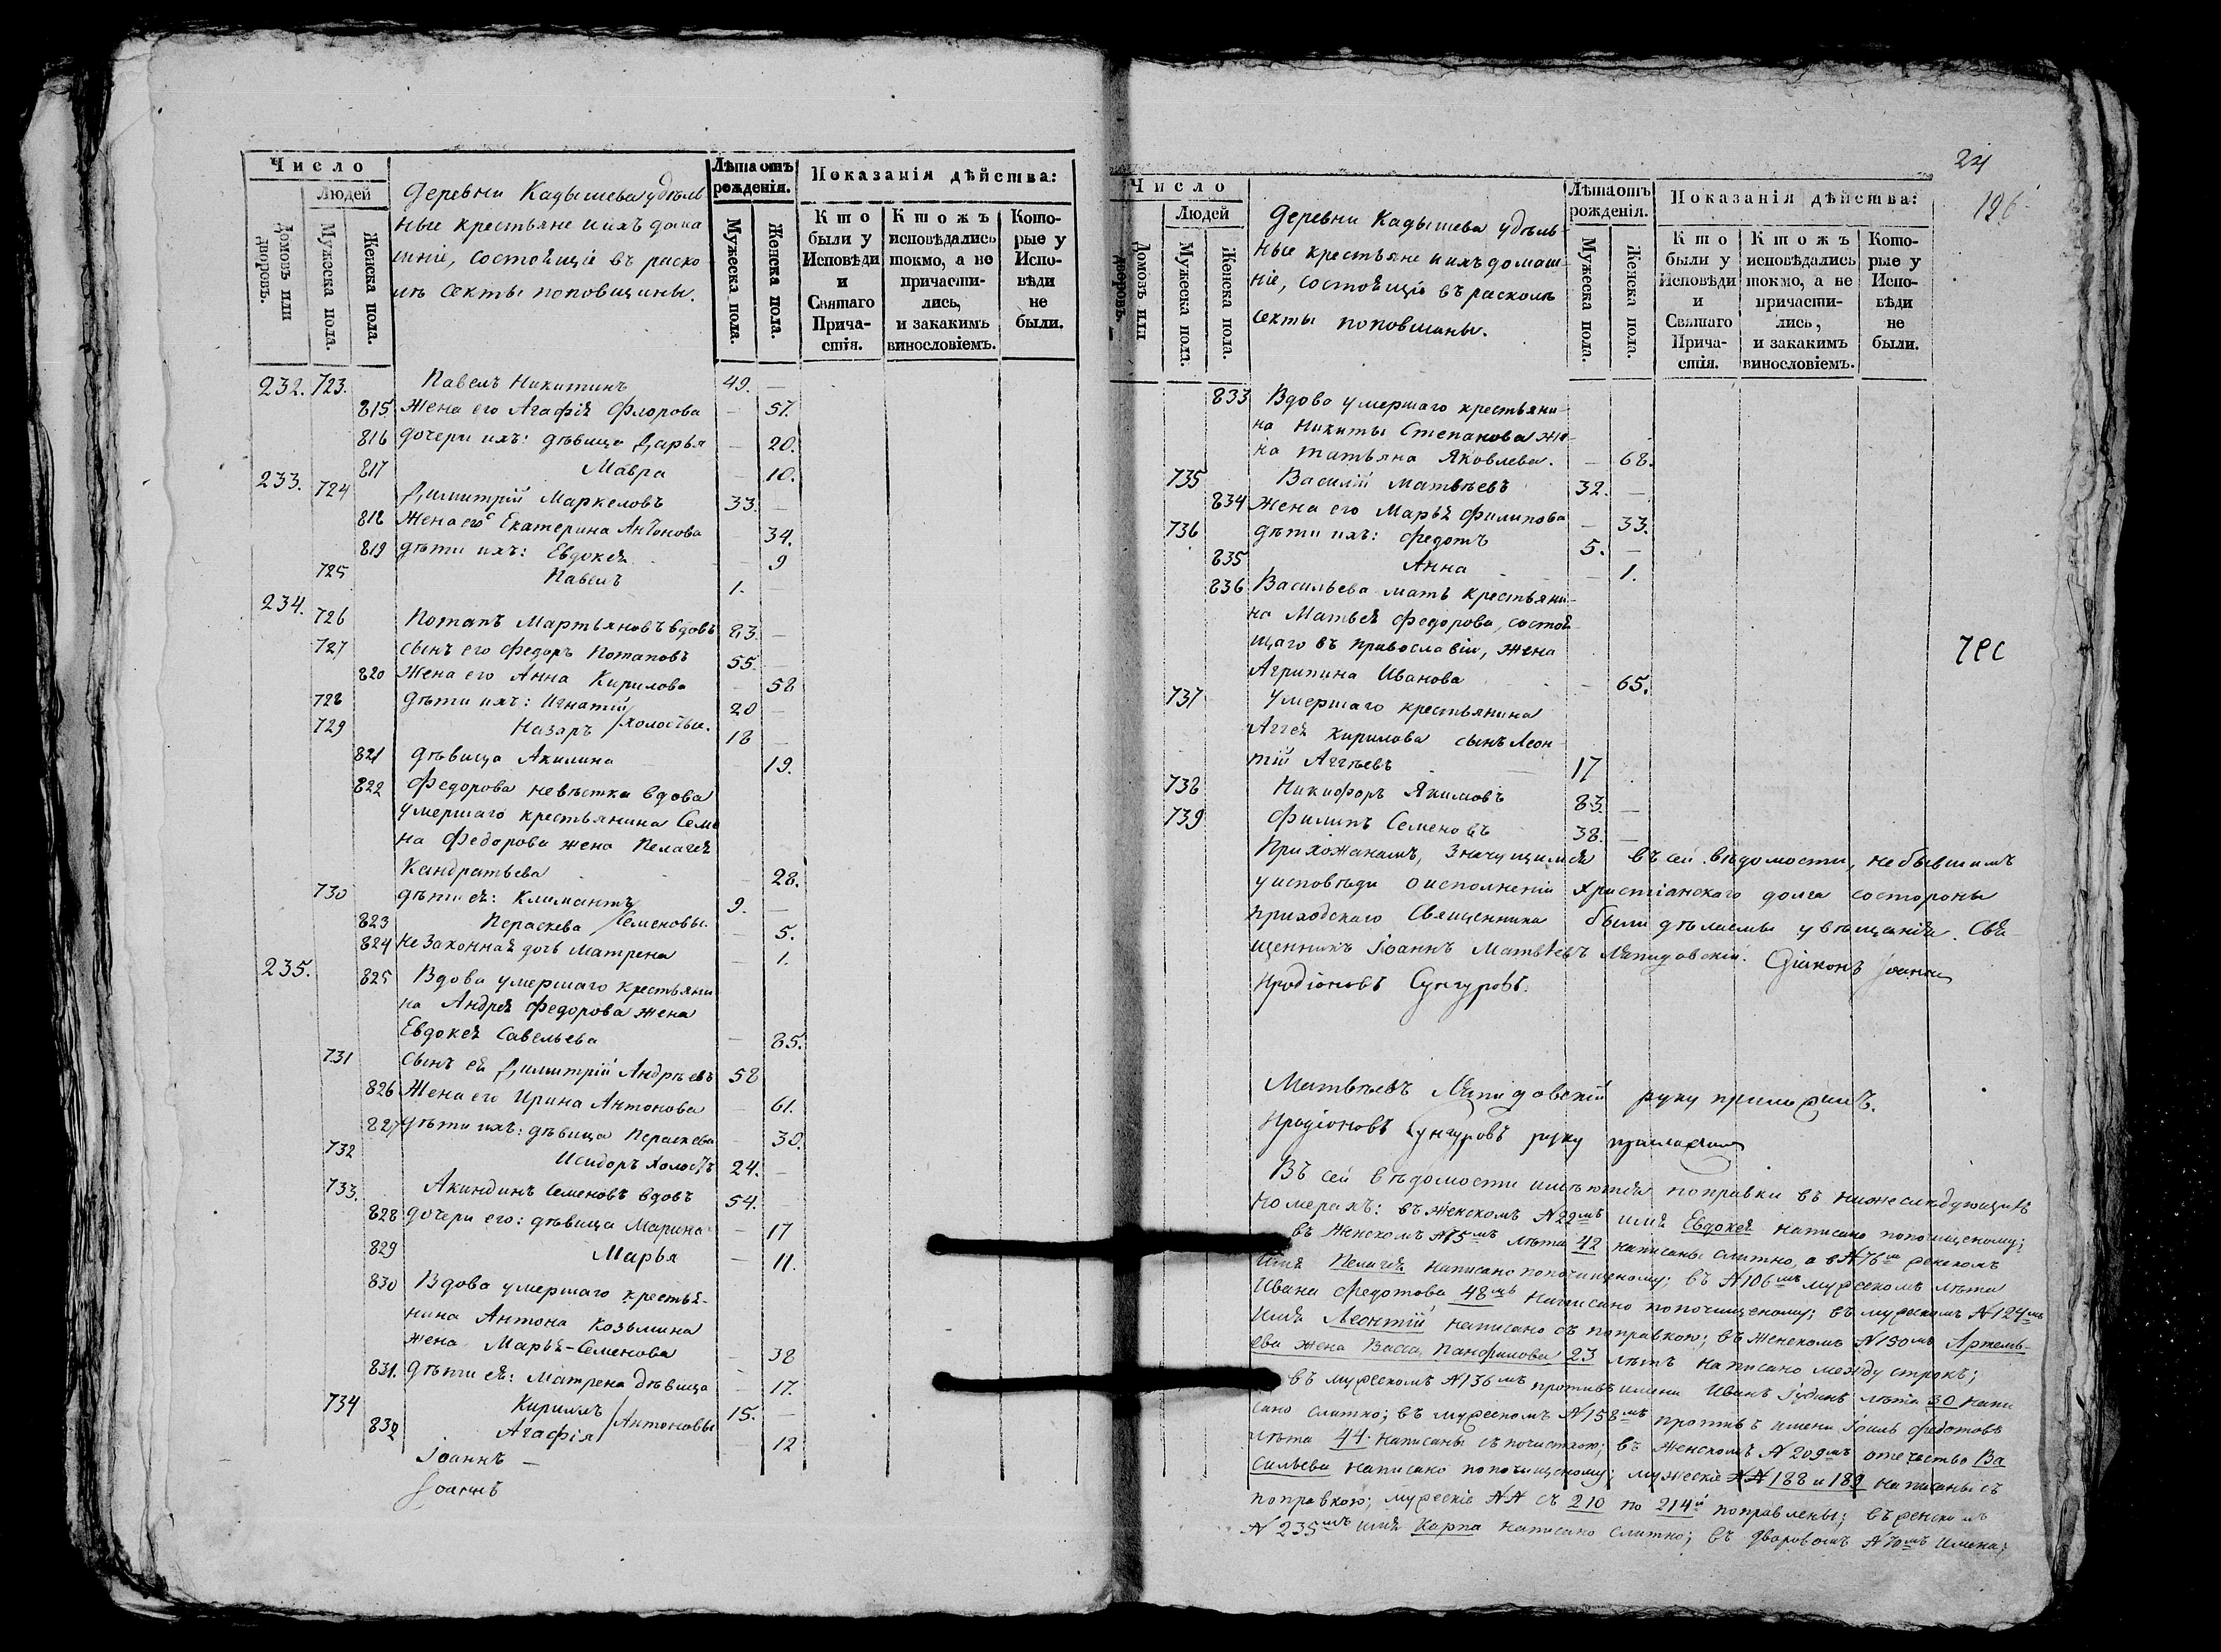 Число
Людей
Домовъ или дворовъ.
Мужеска пола.
Женска пола.
Деревни Кадышева удѣль
ные крестьяне и ихъ дома
шніе, состоящіе въ раско
лѣ секты поповщины.
Лѣта отъ рожденія.
Мужеска пола.
Женска пола.
Показанія дѣйства:
Кто были у Исповѣди и Святаго Причастія.
Ктожъ исповѣдались токмо, а не причастились, и закакимъ винословіемъ.
Которые у Исповѣди не были.
232. 723. Павелъ Никитинъ 49. —
815. Жена его Агафія Флорова — 51.
816 дочери ихъ: дѣвица Дарья — 20.
817 Мавра — 10.
233. 724 Димитрій Маркеловъ 33. —
818 Жена его Екатерина Антонова — 34.
819 дѣти ихъ: Евдокея — 9
725 Павелъ 1. —
234. 726 Потапъ Мартьяновъ вдовъ 83. —
727 сынъ его Федоръ Потаповъ 55. —
820 Жена его Анна Кирилова — 58
728 дѣти ихъ: Игнатій 20 —
729 Назаръ / холостые. 18 —
821 дѣвица Акилина — 19.
822 Федорова невѣстка вдова
умершаго крестьянина Семе
на Федорова жена Пелагея
Кандратьева — 28.
730 дѣти ея: Климантъ 9. —
823 Пераскева / Семеновы. — 5.
824 Незаконная дочь Матрена — 1.
235. 825 Вдова умершаго крестьяни
на Андрея Федорова жена
Евдокея Савельева — 85.
731 Сынъ ея Димитрій Андрѣевъ 58
826 Жена его Ирина Антонова — 61.
827 дѣти ихъ: дѣвица Пераскева — 30.
732 Исидоръ холостъ 24. —
733. Акиндинъ Семеновъ вдовъ 54. —
828 дочери его: дѣвица Марина — 17
829 Марья — 11.
830 Вдова умершаго крестья-
нина Антона Козьмина
жена Марья Семенова — 38
831. дѣти ея: Матрена дѣвица — 17.
734 Кирилъ 15. —
832 Агафія / Антоновы — 12
Іоаннъ —
Іоаннъ
24
126
Число
Людей
Домовъ или дворовъ.
Мужеска пола.
Женска пола.
Деревни Кадышева удѣль-
ные крестьяне и ихъ домаш-
ніе, состоящіе въ расколѣ
секты поповщины.
Лѣта отъ рожденія.
Мужеска пола.
Женска пола.
Показанія дѣйства:
Кто были у Исповѣди и Святаго Причастія.
Ктожъ исповѣдались токмо, а не причастились, и закакимъ винословіемъ.
Которые у Исповѣди не были.
833 Вдова умершаго крестьяни-
на Никиты Степанова же-
на Татьяна Яковлева. — 68.
735 Василій Матвѣевъ 32. —
834 Жена его Марья Филипова — 33.
736 дѣти ихъ: Федотъ 5. —
835 Анна — 1.
836 Васильева мать крестьяни-
на Матвея Федорова, состоя-
щаго въ православіи, жена
Агрипина Иванова — 65.
737 Умершаго крестьянина
Аггея Кирилова сынъ Леон-
тій Аггѣевъ 17
738 Никифоръ Якимовъ 83. —
739 Филипъ Семеновъ 38. —
Прихожанамъ, значущимся въ сей вѣдомости, небывшимъ
у исповѣди о исполненіи Христіанскаго долга состороны
приходскаго Священника были дѣлаемы увѣщанія. Свя-
щенникъ Іоаннъ Матвѣевъ Лапидовскій. Діаконъ Іоаннъ
Иродіоновъ Сунгуровъ.
Матвѣевъ Лапидовскій руку приложилъ.
Иродіоновъ Сунгуровъ руку приложилъ
Въ сей вѣдомости имѣются поправки въ нижеслѣдующихъ
номерахъ: въ женскомъ №22мъ имя Евдокея написано попочищеному;
въ женскомъ №75мъ лѣта 42 написаны слитно, а в №76м женскомъ
имя Пелагея написано попочищеному; въ №106мъ мужескомъ лѣта
Ивана Федотова 48мъ написано попочищеному; въ мужескомъ №124мъ
имя Леонтій написано съ поправкою; въ женскомъ №150мъ Артемь-
ева жена Васса Панфилова 23 лѣтъ написано между строкъ;
въ мужескомъ №136мъ противъ имени Иванъ лѣта 30 напи
сано слитно; въ мужескомъ №158мъ противъ имени Федотовъ
лѣта 44 написаны съ почисткою; въ женскомъ №209мъ отечество Ва
сильева написано попочищеному; мужескіе №№ 188 и 189 написаны съ
поправкою; мужескіе №№ съ 210 по 214й поправлены; въ женскомъ
№235мъ имя Карпа написано слитно; въ дворовомъ №70мъ имена;